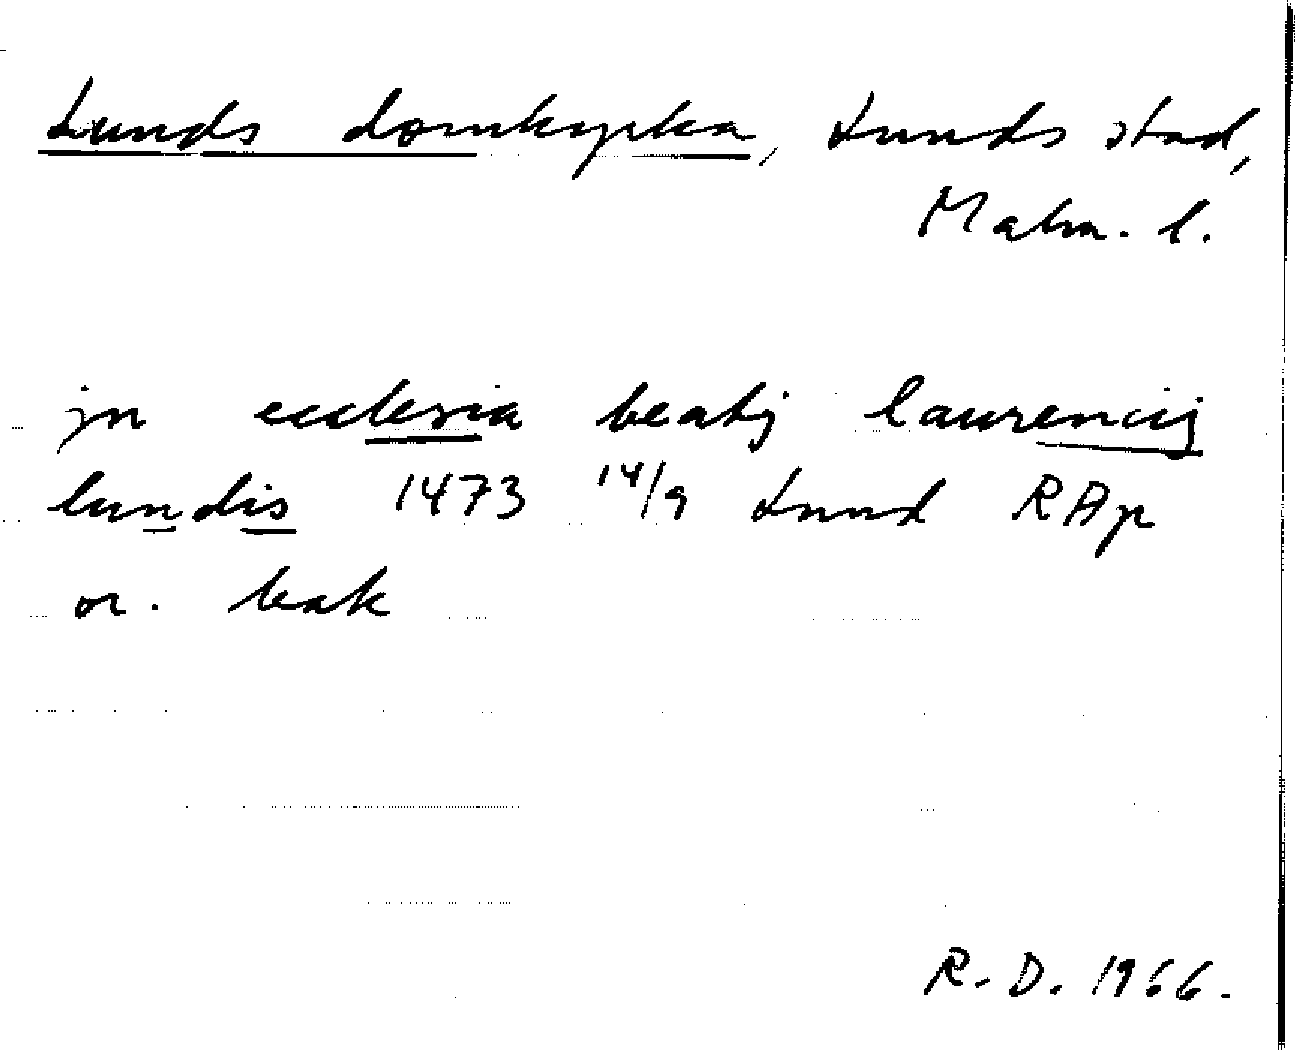 Lunds domkyrka, Lunds stad,
Malm. l.
jn ecclesia beatij laurencij
lundis 1473 14/9 Lund RAp
or. bak
R. D. 1966.